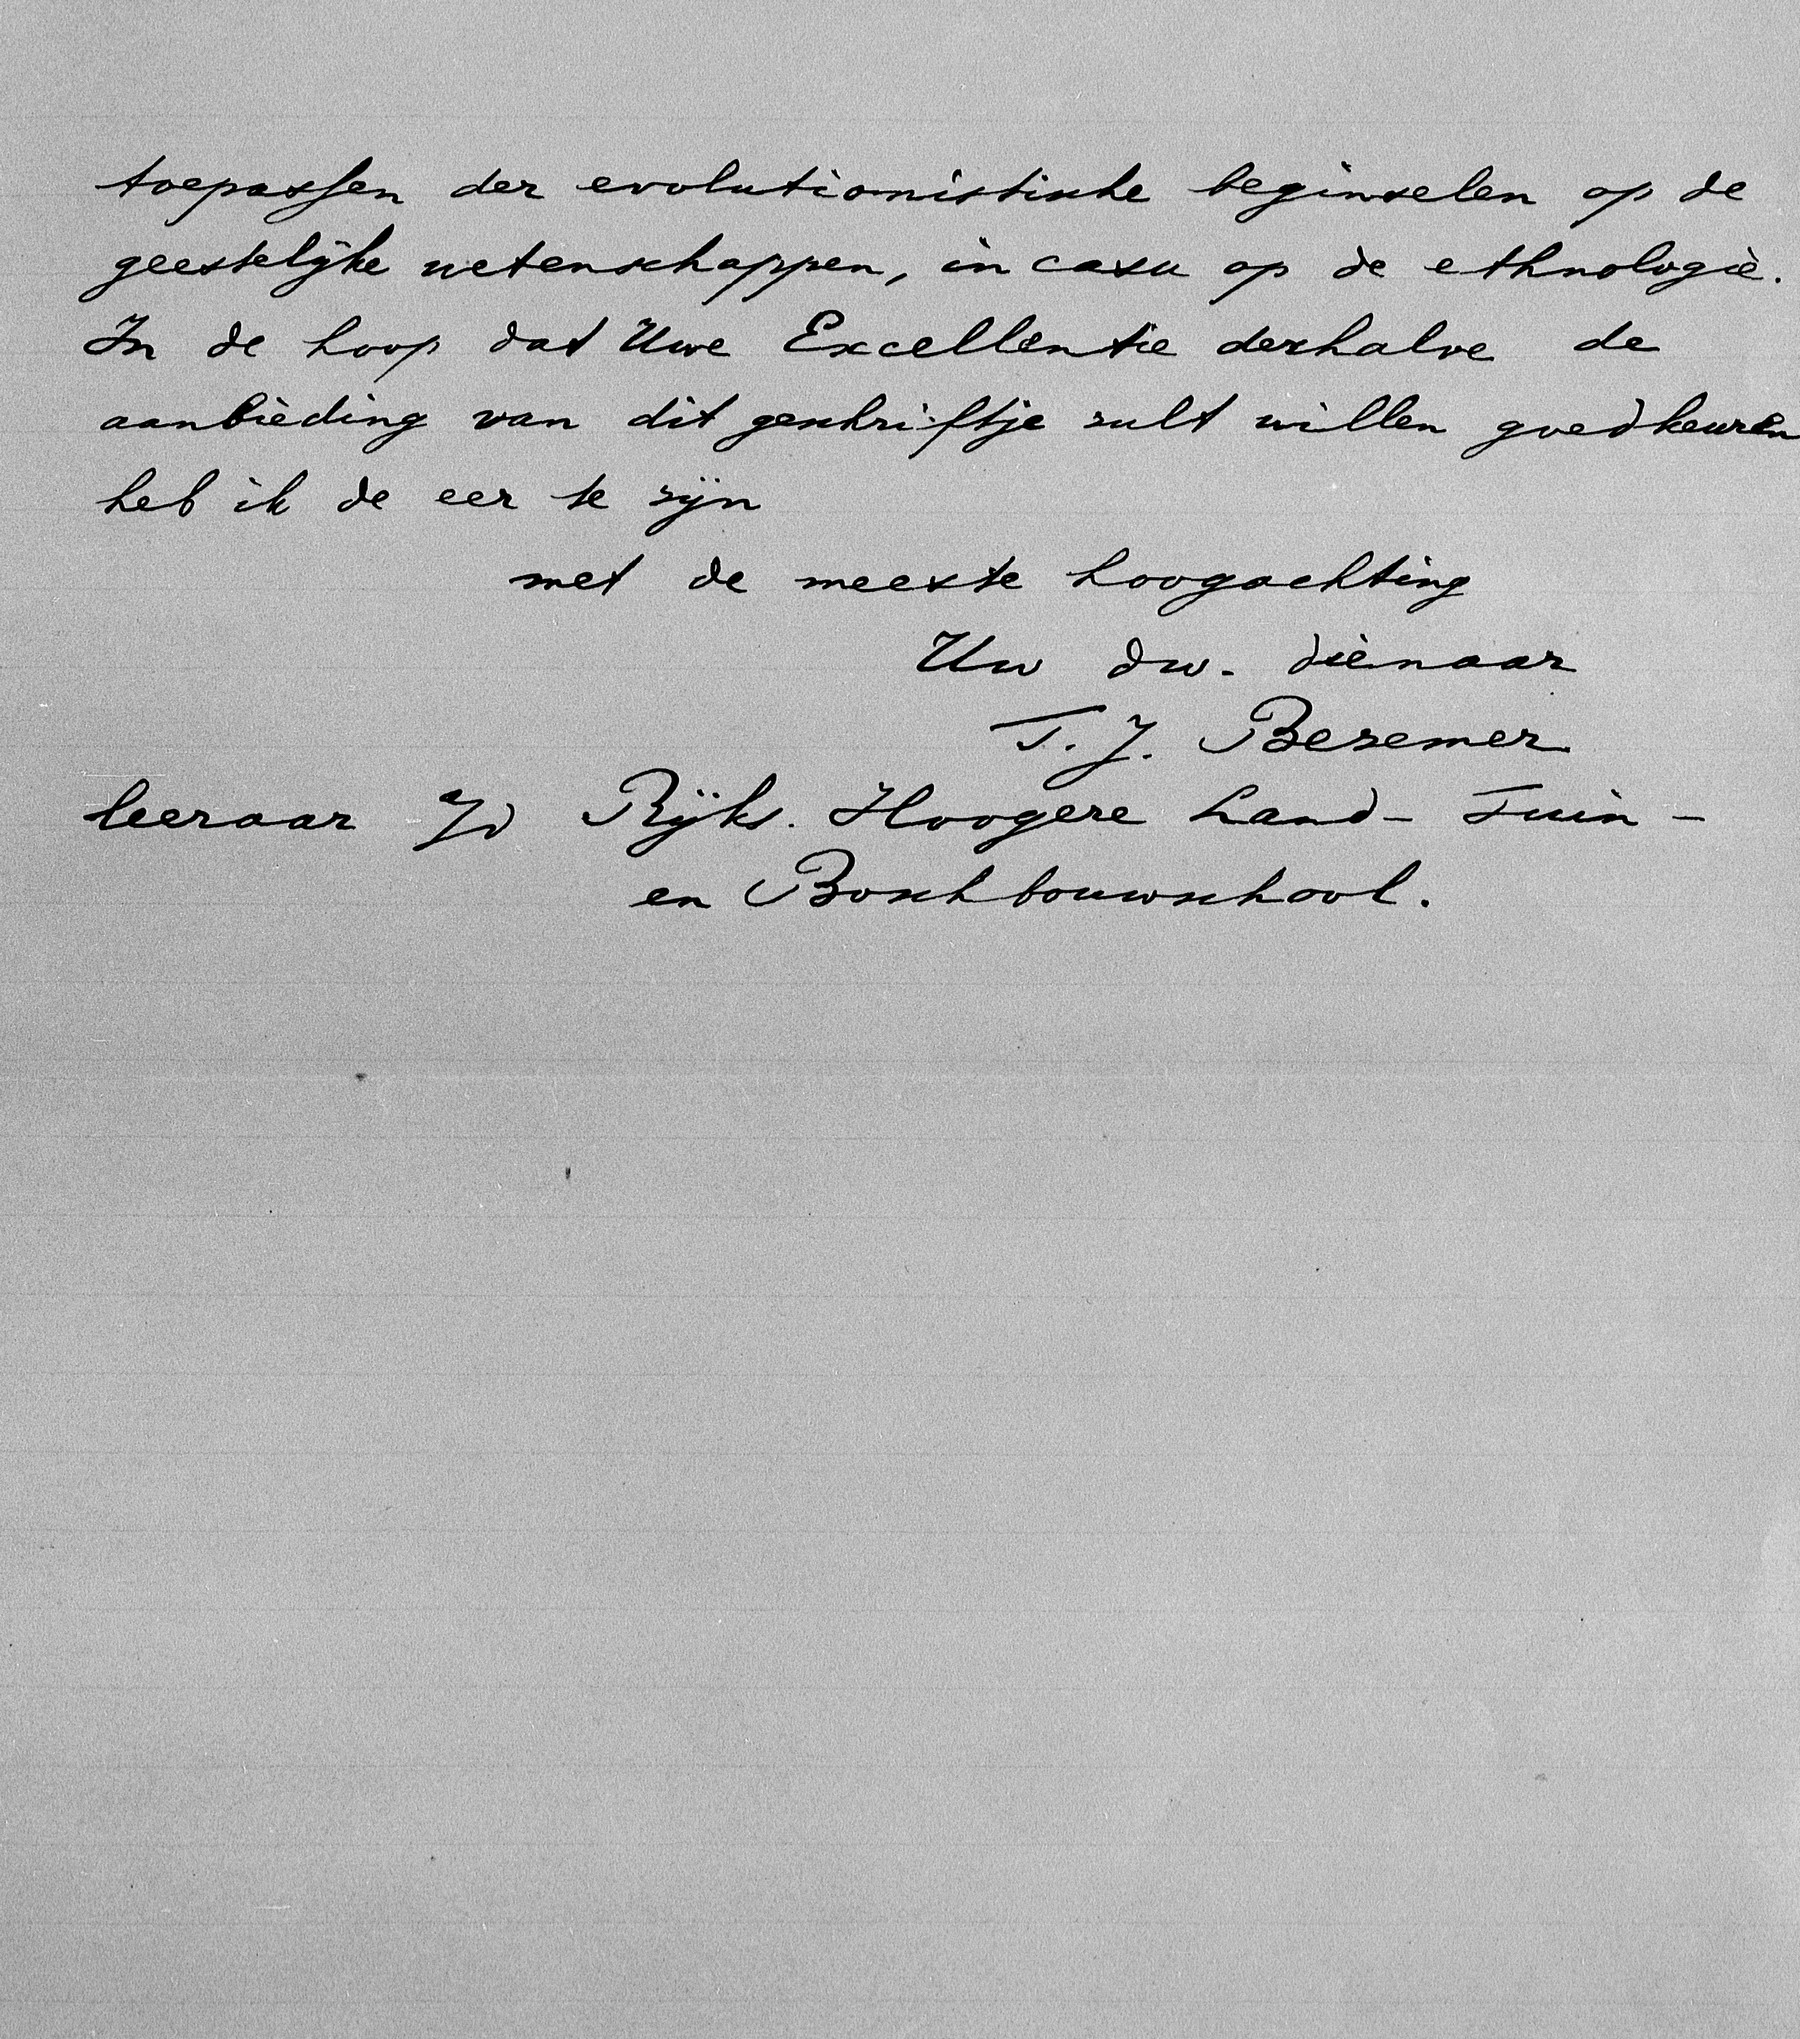 toepassen der evolutionistische beginselen op de
geestelijke wetenschappen, in casu op de ethnologie.
In de hoop dat Uwe Excellentie derhalve de
aanbieding van dit geschriftje zult willen goedkeuren
heb ik de eer te zijn
met de meeste hoogachting
Uw dw. dienaar
T. J. Bezemer
leeraar a/d Rijks. Hoogere Land- Tuin-
en Boschbouwschool.